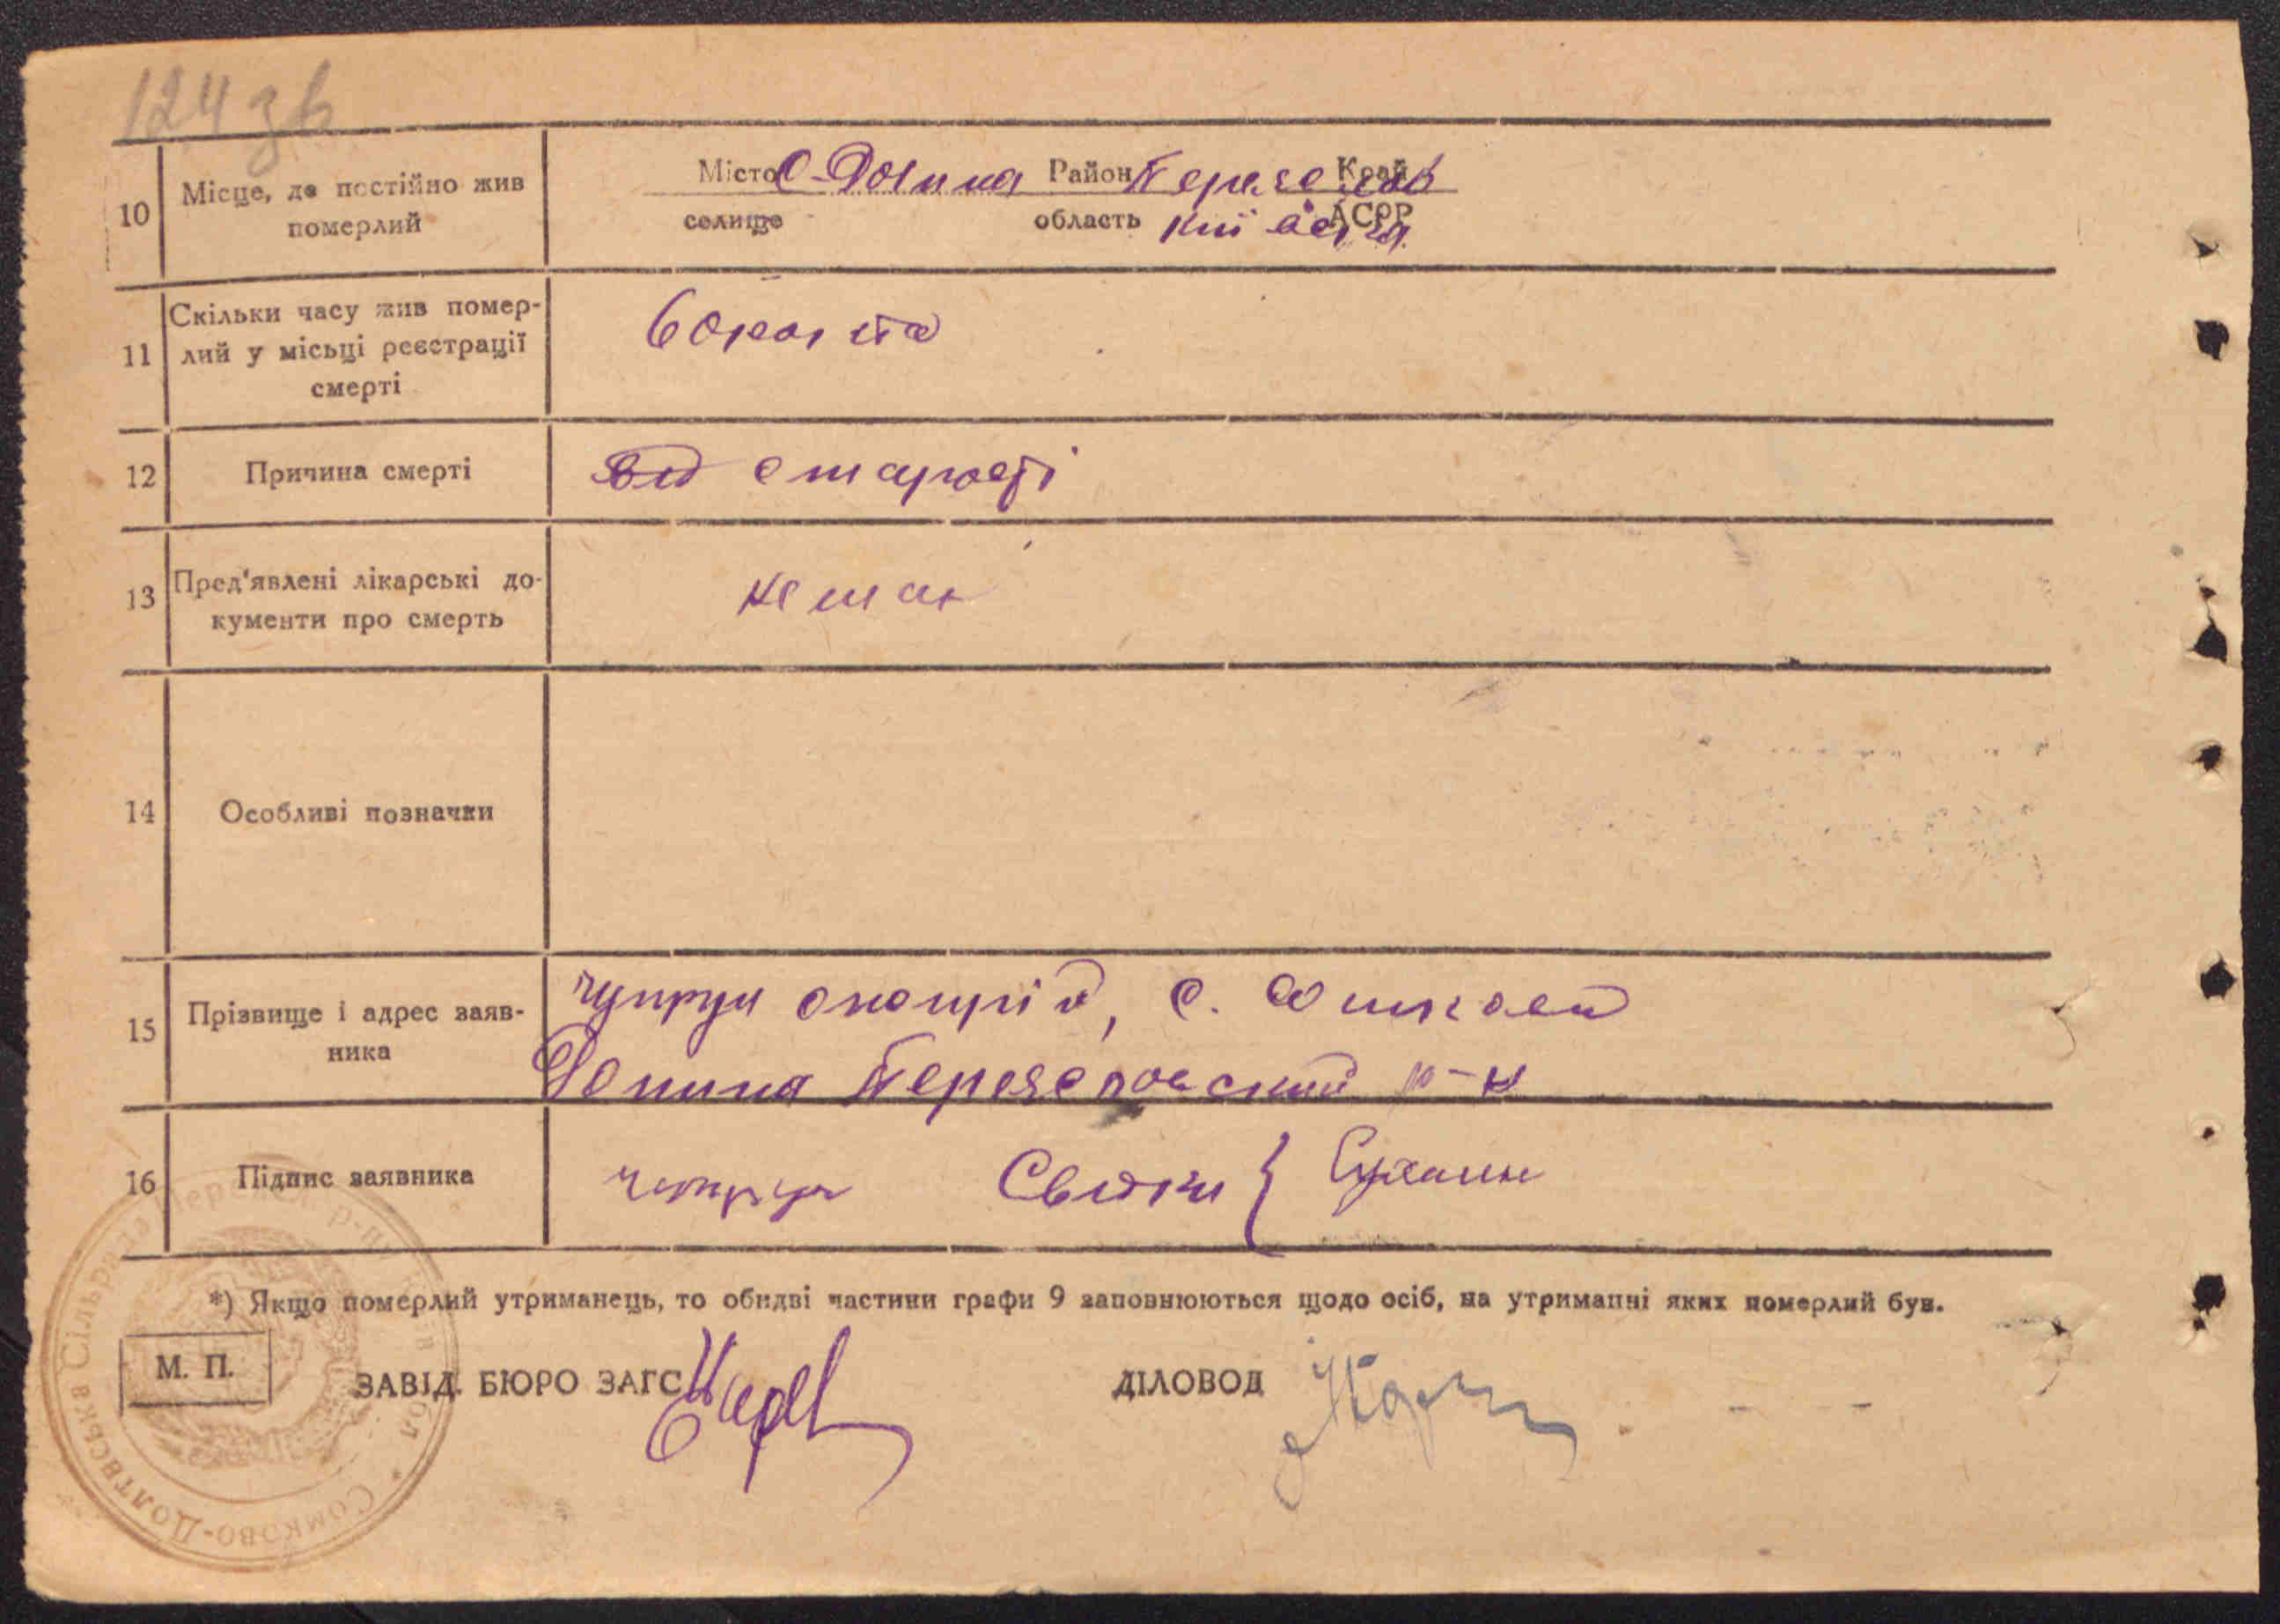 124 зв
10 Місце, де постійно жив померлий
Місто С-Долина Район Переяслав Край
селище область Київська АСРР
11 Скільки часу жив помер-
лий у місьці реєстрації
смерті
12 Причина смерті від старості
13 Пред'явлені лікарські до-
кументи про смерть
немає
14 Особливі позначки
15 Прізвище і адрес заяв-
ника
Чупрун с. Сомкова
Долина Переяславский р-н
16 Підпис заявника Чупрун Свідки {
*) Якщо померлий утриманець, то обидві частини графи 9 заповнюються щодо осіб, на утриманні яких померлий був.
М. П.
ЗАВІД. БЮРО ЗАГС ДІЛОВОД
Сомково-Долтвська Сільрада